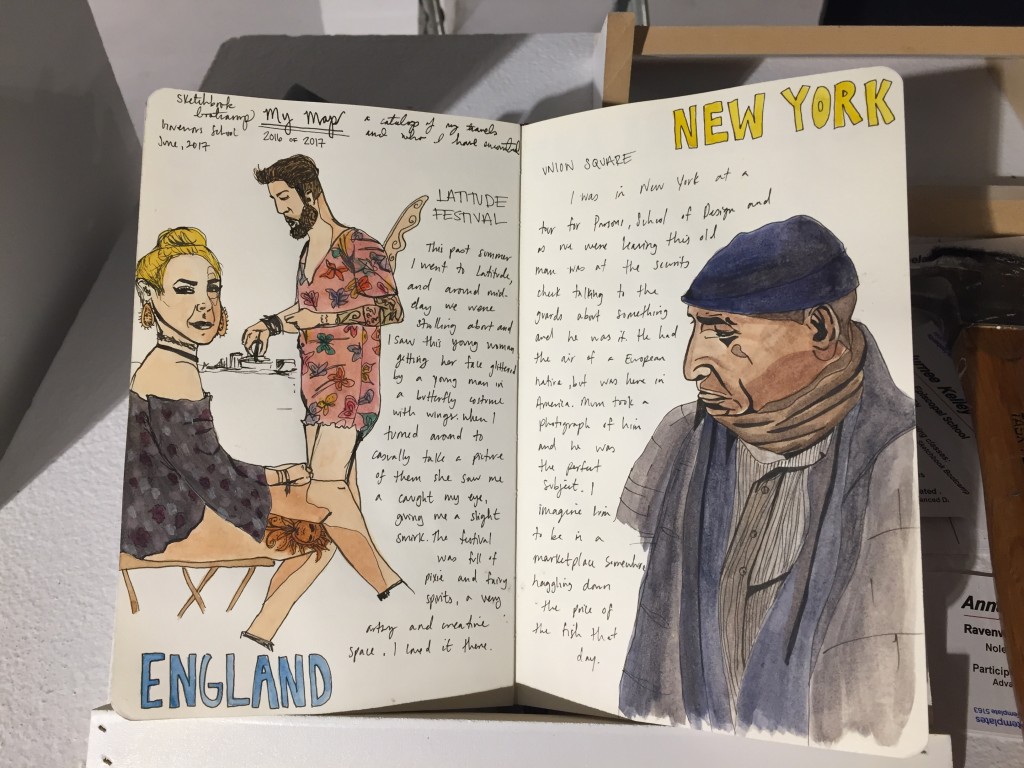 Sketchbook
bootcamp
Governors School
June, 2017
My Map
2016 or 2017
a catalog of my travels
and who I have encountered
LATITUDE
FESTIVAL
This past summer
I went to Latitude,
and around mid-
day we were
strolling about and
I saw this young woman
getting her face glittered
by a young man in
a butterfly costume
with wings. When I
turned around to
casually take a picture
of them she saw me
a caught my eye,
giving me a slight
smirk. The festival
was full of
pixie and fairy
spirits, a very
artsy and creative
space. I loved it there.
ENGLAND
NEW YORK
UNION SQUARE
I was in New York at a
tour for Parsons, School of Design and
as we were leaving this old
man was at the security
check talking to the
guards about something
and he was it. He had
the air of a European
native, but was here in
America. Mum took a
photograph of him
and he was
the perfect
subject. I
imagine him
to be in a
marketplace somewhere
haggling down
the price of
the fish that
day.
Kelley
School
Ann
Ravenw
Nole
Particip
Adva
templates
Template 5163